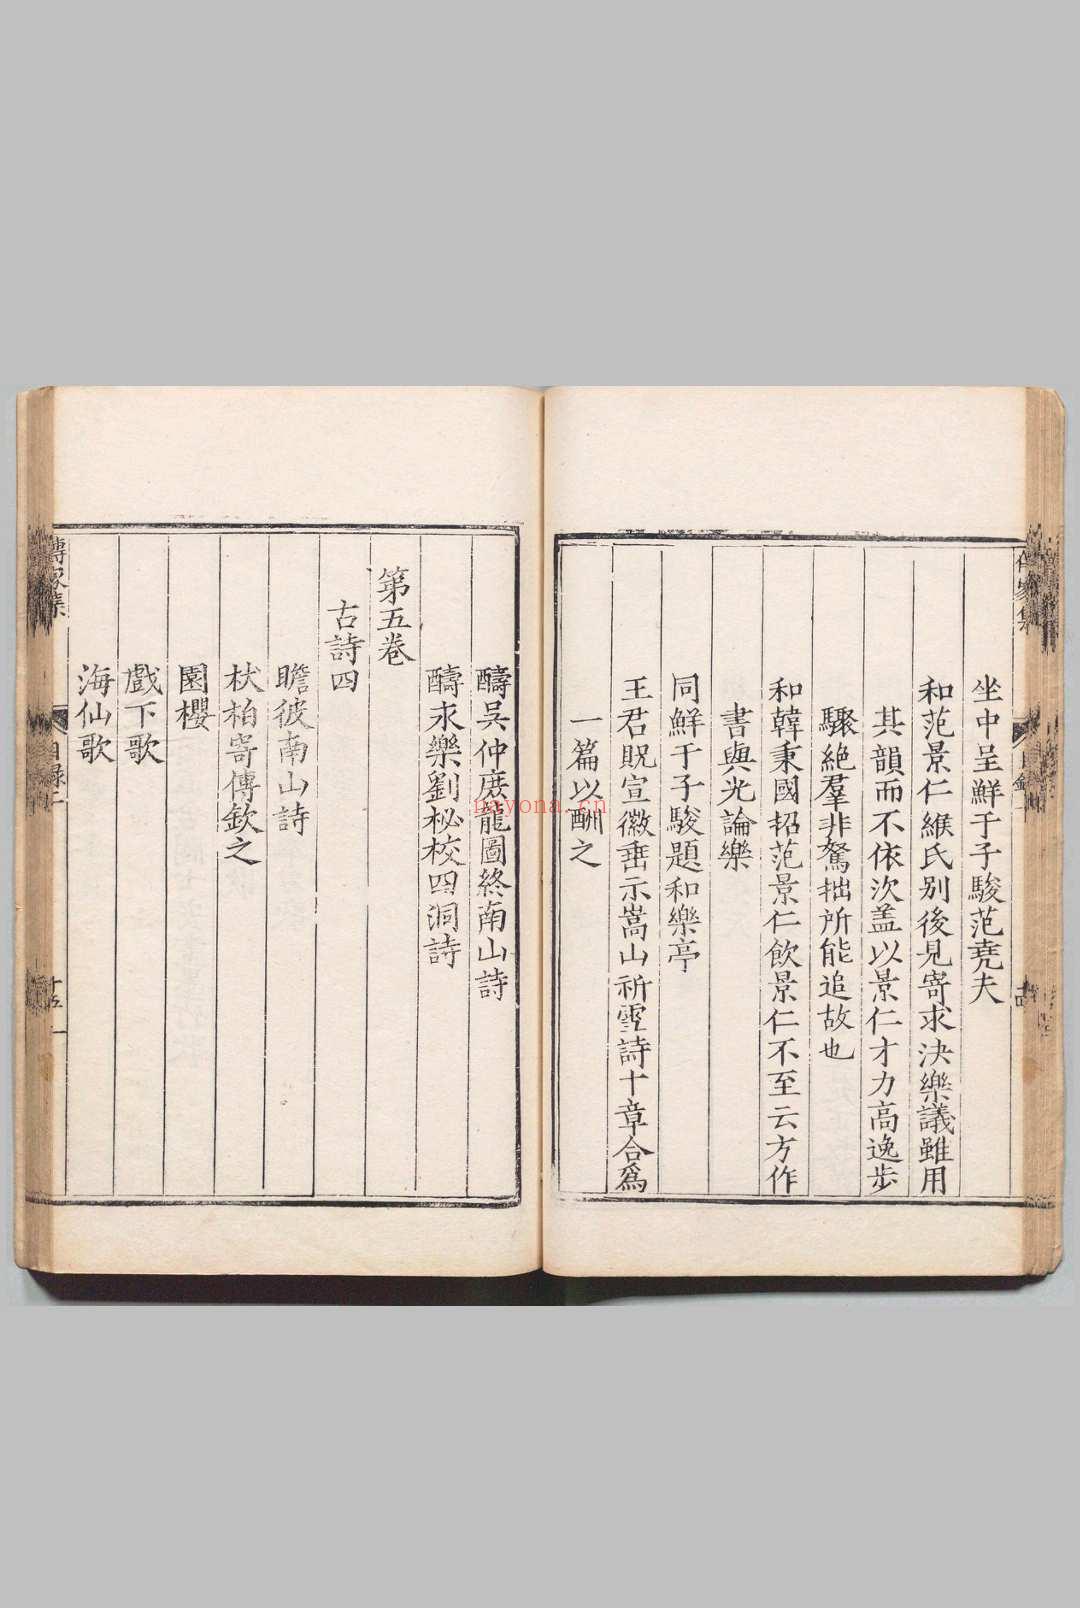 坐中呈鮮于子駿范堯夫
和范景仁緱氏別後見寄求決樂議雖用
其韻而不依次盖以景仁才力高逸步
驟絶羣非駑拙所能追故也
和韓秉國招范景仁飲景仁不至云方作
書與光論樂
同鮮于子駿題和樂亭
王君貺宣徽垂示嵩山祈雪詩十章合爲
一篇以酬之
醻吳仲庶龍圖終南山詩
醻永樂劉秘校四洞詩
第五卷
古詩四
瞻彼南山詩
栿柏寄傳欽之
園櫻
戲下歌
海仙歌
傳家集
目録
十五
nayona.cn